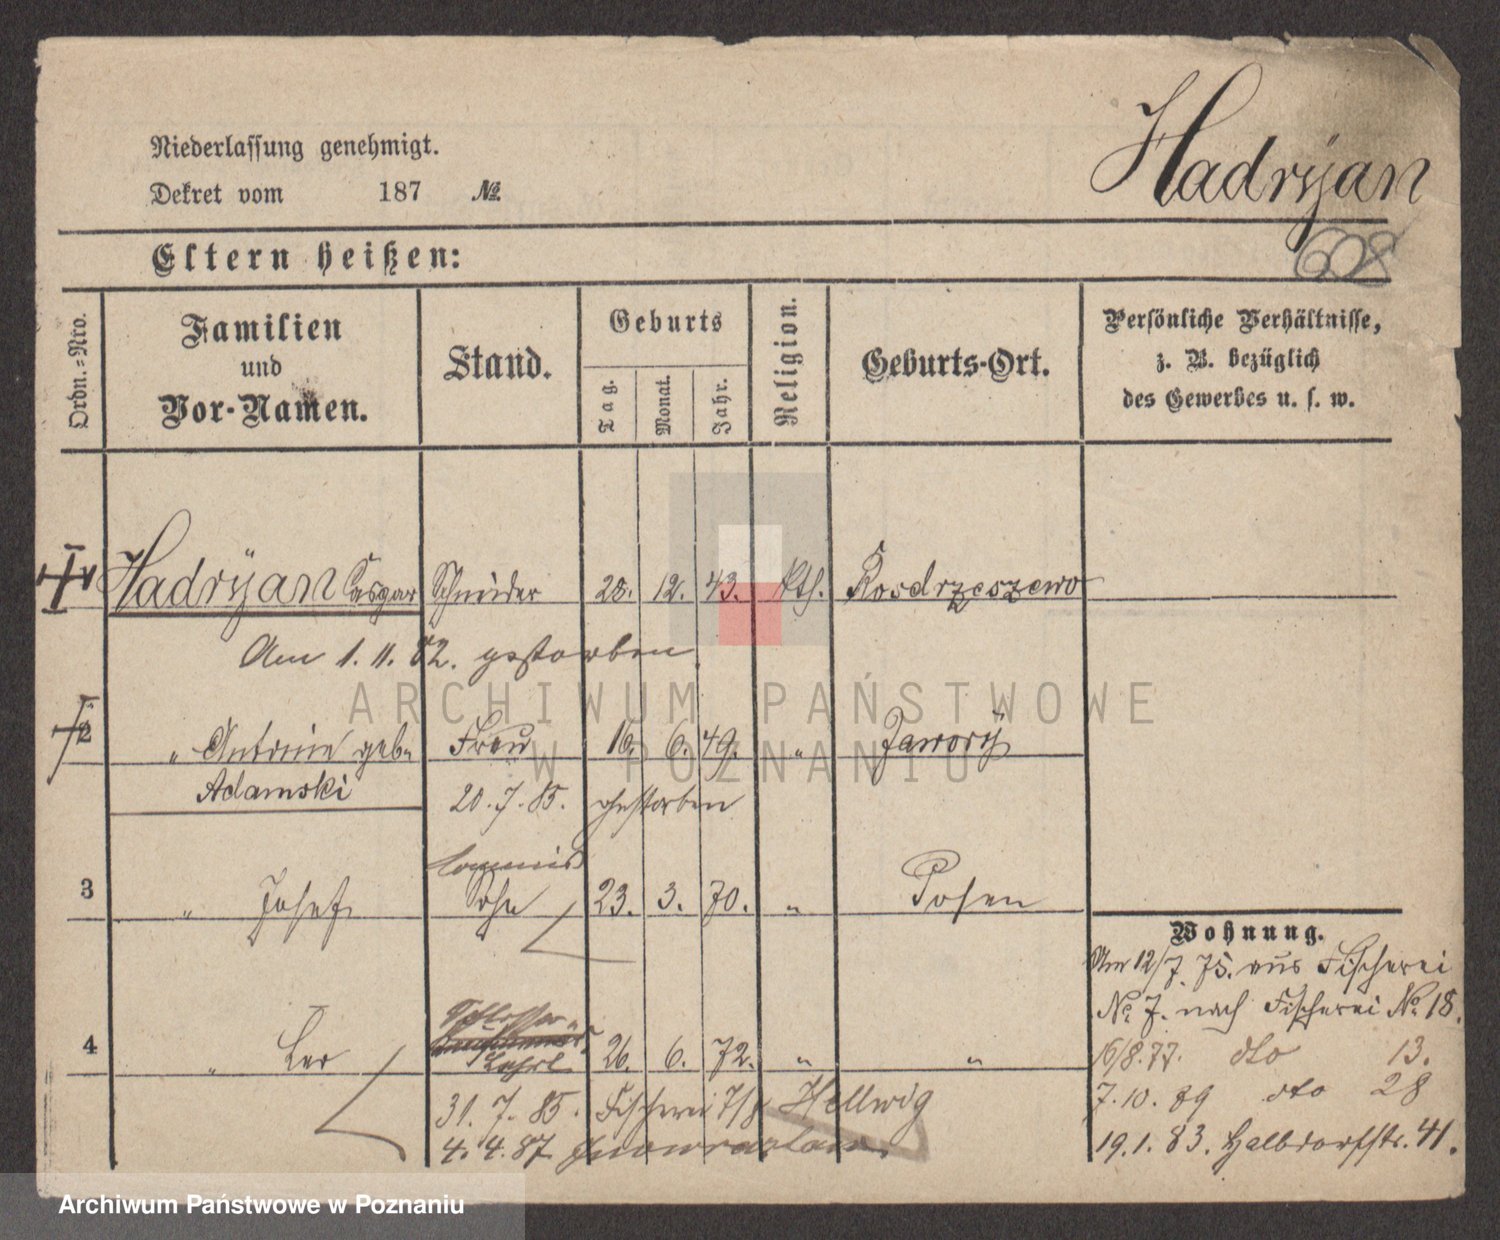 Hadrÿan
Niederlassung genehmigt.
Dekret vom 187 №
608
Eltern heißen:
Ordn.=Nro.
Familien
und
Vor-Namen.
Stand.
Geburts
Tag.
Monat.
Jahr.
Religion.
Geburts-Ort.
Persönliche Verhältnisse,
z. B. bezüglich
des Gewerbes u. s. w.
Hadrÿan Caspar Schneider 28. 12. 43. kth. Rosdrzeszewo
Am 1. 11. 82. gestorben
2 " Antonie geb. Frau 16. 6. 49. " Jaworÿ
Adamski
20. 7. 85. gestorben
Commis
3 " Josef Sohn 23. 3. 70. " Posen
Schlosser
4 " Leo Lehrl. 26. 6. 72. " "
31. 7. 85. Fischerei 7/8 Hellwig
4. 4. 87 Inowrazlaw
Wohnung.
Am 12/7. 75. aus Fischerei
No 7. nach Fischerei No 18.
16/8. 77. dto 13.
7. 10. 89 dto 28
19. 1. 83. Halbdorfstr. 41.
ARCHIWUM PAŃSTWOWE
W POZNANIU
Archiwum Państwowe w Poznaniu